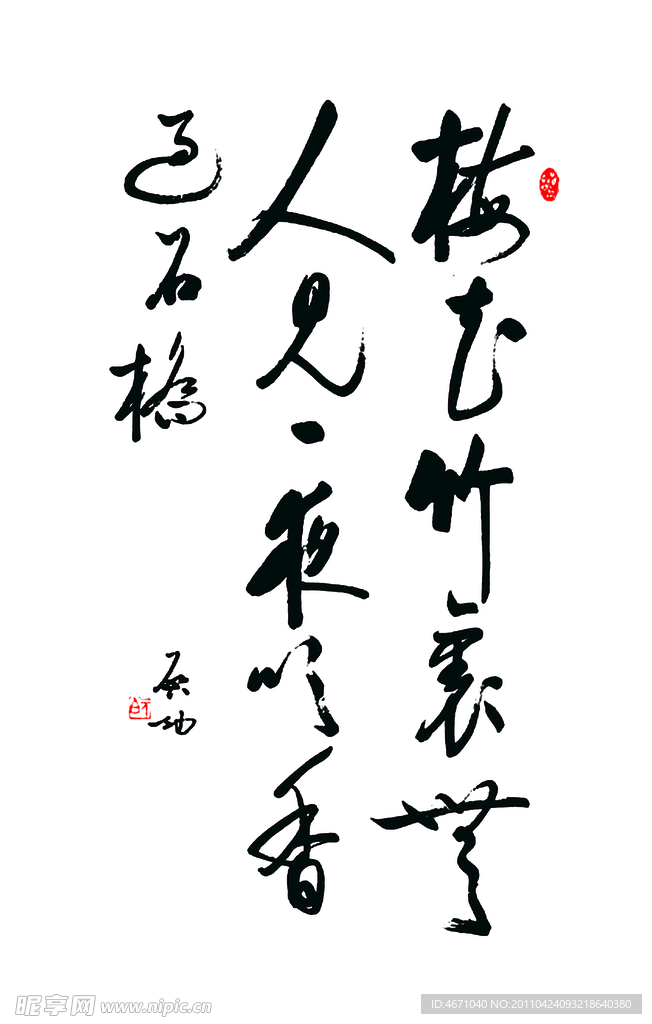 梅花竹裏無
人見一夜吹香
過石橋
启功
昵享网 www.nipic.cn
ID:4671040 NO:20110424093218640380